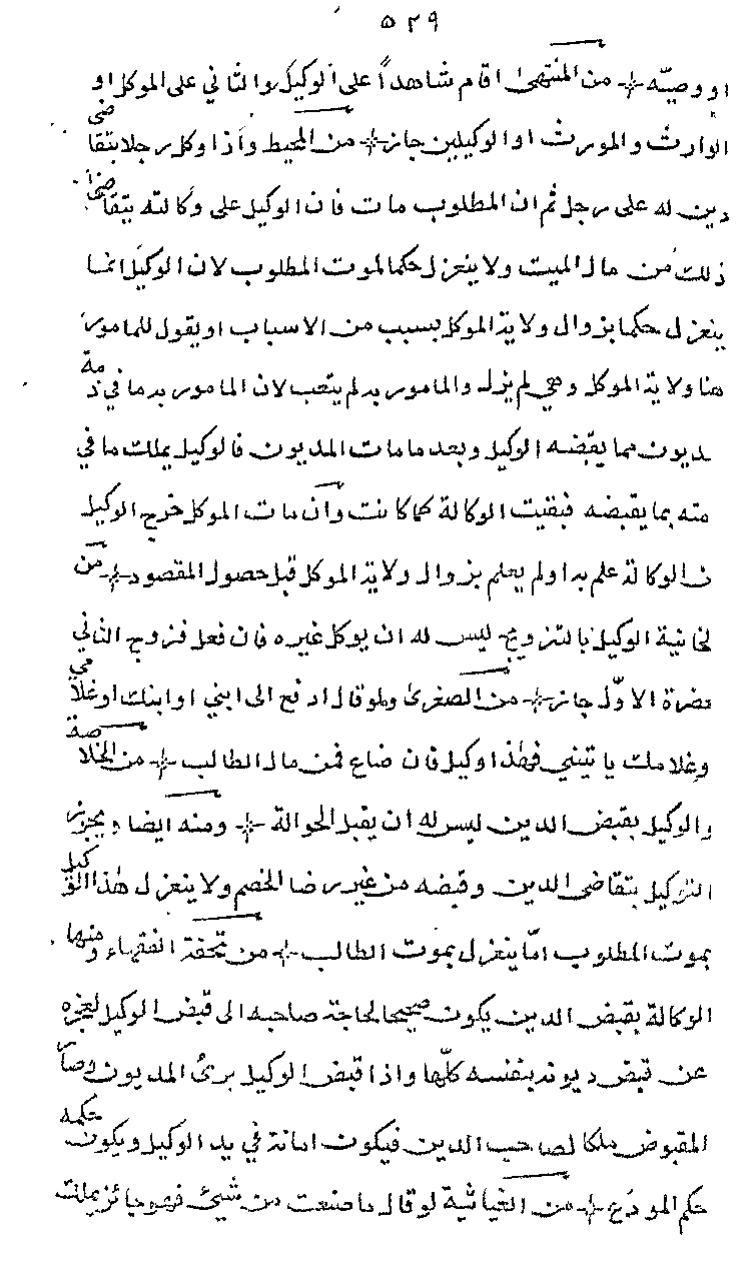 ٥٢٩
او وصيّه من المنتهى اقام شاهداً على الوكيل والثاني على الموكل او
الوارث والمورث او الوكيلين جاز من المحيط واذا وكل رجلا بتقاضى
دين له على رجل ثم ان المطلوب مات فان الوكيل على وكالته يتقاضى
ذلك من مال الميت ولا ينعزل حكما لموت المطلوب لان الوكيل انما
ينعزل حكما بزوال ولاية الموكل بسبب من الاسباب او يقول للمامور
هنا ولاية الموكل وهي لم يزل والمامور به لم يتعب لان المامور به ما في ذمة
ـديون مما يقبضه الوكيل وبعد ما مات المديون فالوكيل يملك ما في
مته بما يقبضه فبقيت الوكالة كما كانت وان مات الموكل خرج الوكيل
ن الوكالة علم به او لم يعلم بزوال ولاية الموكل قبل حصول المقصود من
لخانية الوكيل بالتزويج ليس له ان يوكل غيره فان فعل فزوج الثاني
ـضرة الاوّل جاز من الصغرى ولو قال ادفع الى ابني او ابنك او غلامي
وغلامك ياتيني فهذا وكيل فان ضاع فمن مال الطالب من الخلاصة
والوكيل بقبض الدين ليس له ان يقبل الحوالة ومنه ايضا ويجوز
التوكيل بتقاضى الدين وقبضه من غير رضا الخصم ولا ينعزل هذا الوكيل
بموت المطلوب امّا ينعزل بموت الطالب من تحفة الفقهاء ومنها
الوكالة بقبض الدين يكون صحيحا لحاجة صاحبه الى قبض الوكيل لعجزه
عن قبض ديونه بنفسه كلّها واذا قبض الوكيل برئ المديون وصار
المقبوض ملكا لصاحب الدين فيكون امانة في يد الوكيل ويكون حكمه
حكم المودَع من الغياثية لو قال ما صنعت من شيئ فهو جائز يملك